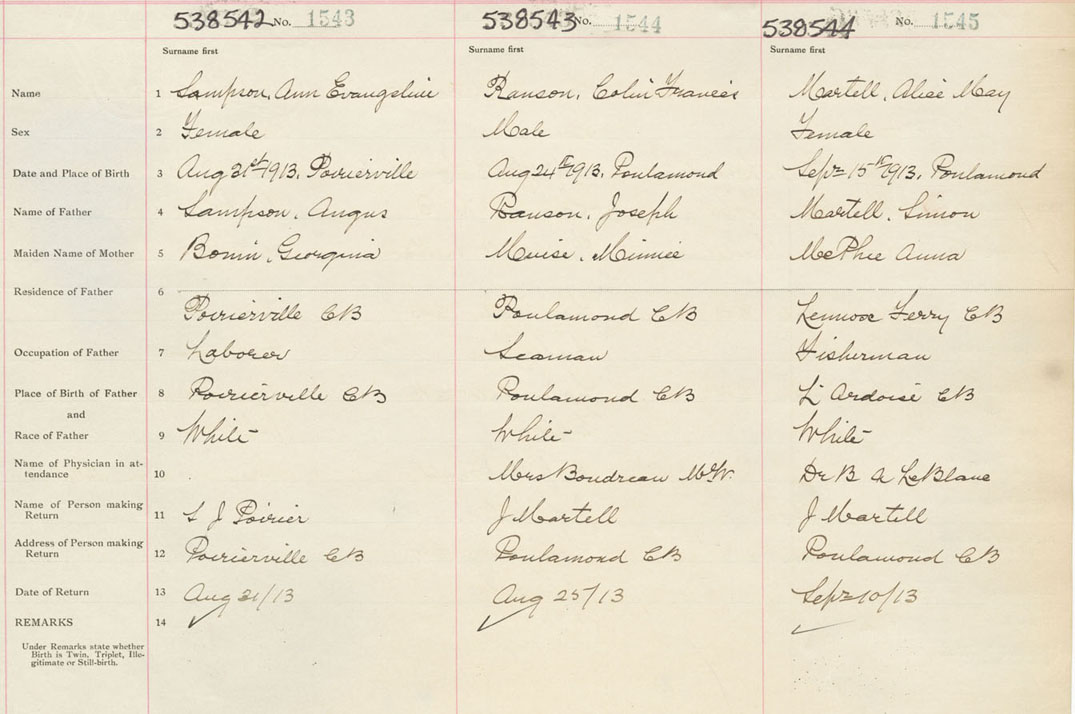 538542 No. 1543 538543 No. 1544 538544 No. 1545
Surname first Surname first Surname first
Name 1 Sampson, Ann Evangeline Ranson, Colin Francis Martell, Alice May
Sex 2 Female Male Female
Date and Place of Birth 3 Aug 31st 1913, Poirierville Aug 24th 1913, Poulamond Sept 15th 1913, Poulamond
Name of Father 4 Sampson, Angus Ranson, Joseph Martell, Simon
Maiden Name of Mother 5 Bonin, Georgina Muise, Minnie McPhee Anna
Residence of Father 6
Poirierville CB Poulamond CB Lennox Ferry CB
Occupation of Father 7 Laborer Seaman Fisherman
Place of Birth of Father 8 Poirierville CB Poulamond CB L'Ardoise CB
and
Race of Father 9 White White White
Name of Physician in at-
tendance 10 Mrs Boudreau M.W. Dr B A LeBlanc
Name of Person making
Return 11 S J Poirier J Martell J Martell
Address of Person making
Return 12 Poirierville CB Poulamond CB Poulamond CB
Date of Return 13 Aug 31/13 Aug 25/13 Sept 10/13
REMARKS 14
Under Remarks state whether
Birth is Twin, Triplet, Ille-
gitimate or Still-birth.